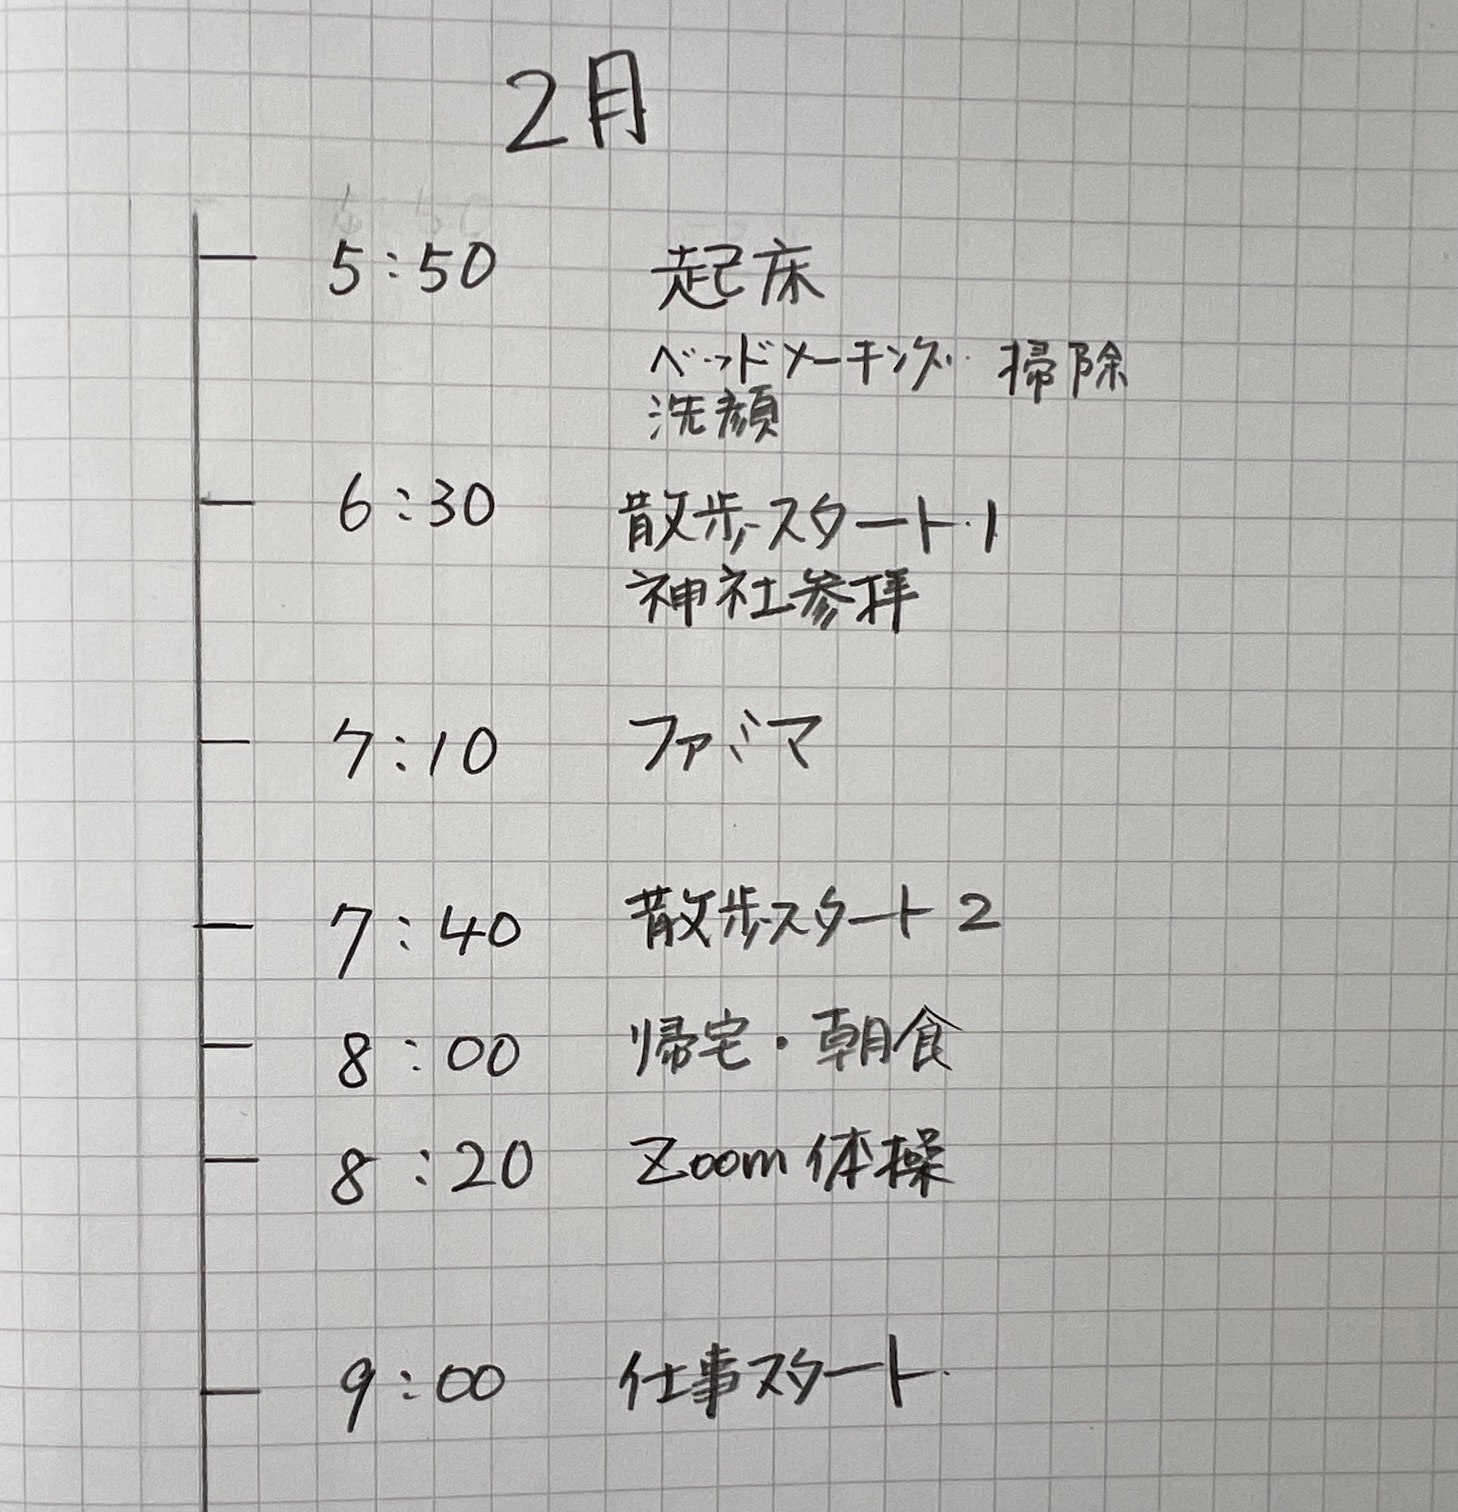 2月
5:50 起床
ベッドメーキング 掃除
洗顔
6:30 散歩スタート1
神社参拝
7:10 ファミマ
7:40 散歩スタート2
8:00 帰宅・朝食
8:20 Zoom体操
9:00 仕事スタート